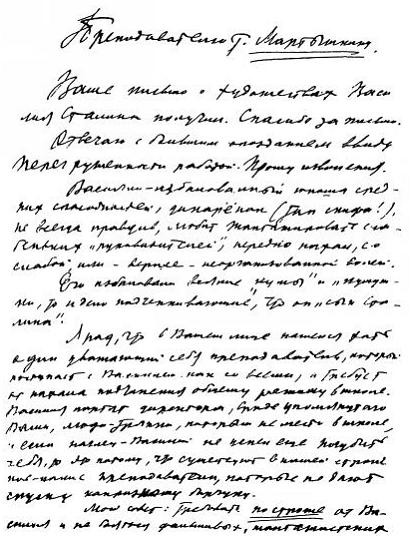 Преподавателю т. Мартышину.
Ваше письмо о художествах Васи
лия Сталина получил. Спасибо за письмо.
Отвечаю с большим опозданием ввиду
перегруженности работой. Прошу извинения.
Василий – избалованный юноша сред-
них способностей, дикарёнок (тип скифа!),
не всегда правдив, любит шантажировать сла-
беньких "руководителей", нередко нахал, со
слабой или – вернее – неорганизованной волей.
Его избаловали всякие "кумы" и "кумуш-
ки", то и дело подчеркивающие, что он "сын Ста-
лина".
Я рад, что в Вашем лице нашелся хоть
один уважающий себя преподаватель, который
поступает с Василием как со всеми, и требует
от нахала подчинения общему режиму в школе.
Василия портят директора, вроде упомянутого
Вами, люди-тряпки, которым не место в школе,
и если наглец-Василий не успел еще погубить
себя, то это потому, что существуют в нашей стране
кое-какие преподаватели, которые не дают
спуску капризному барчуку.
Мой совет: требовать построже от Ва-
силия и не бояться фальшивых, шантажистских